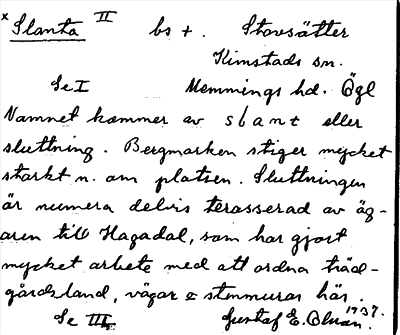 x Slanta II bs +. Stavsätter
Kimstads sn.
Se I Memmings hd. Ögl
Namnet kommer av slant eller
sluttning. Bergmarken stiger mycket
starkt n. om platsen. Sluttningen
är numera delvis terasserad av äg-
aren till Hagadal, som har gjort
mycket arbete med att ordna träd-
gårdsland, vägar & stenmurar här.
Se III, Gustaf E. Olson. 1937.